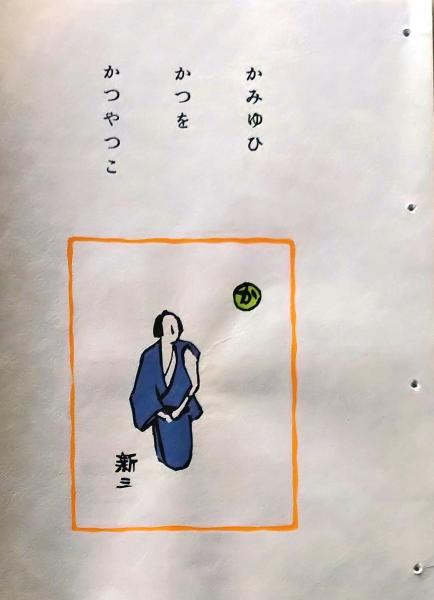 かみゆひ
かつを
かつやつこ
か
新三